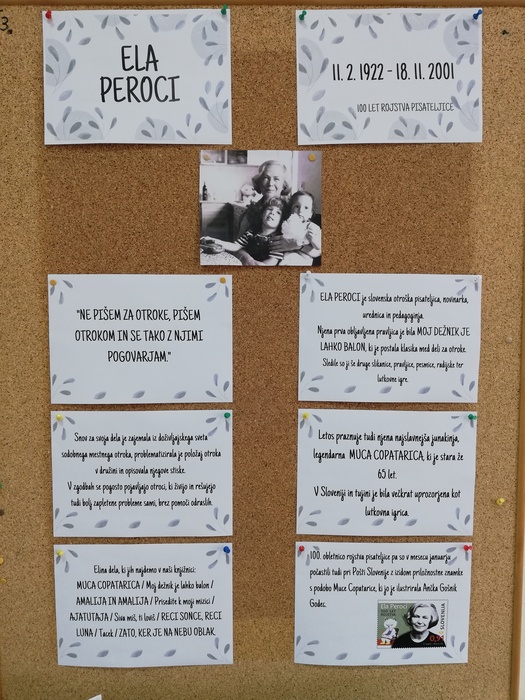 3.
ELA
PEROCI
11. 2. 1922 - 18. 11. 2001
100 LET ROJSTVA PISATELJICE
"NE PIŠEM ZA OTROKE, PIŠEM
OTROKOM IN SE TAKO Z NJIMI
POGOVARJAM."
ELA PEROCI je slovenska otroška pisateljica, novinarka,
urednica in pedagoginja.
Njena prva objavljena pravljica je bila MOJ DEŽNIK JE
LAHKO BALON, ki je postala klasika med deli za otroke.
Sledile so ji še druge slikanice, pravljice, pesmice, radijske ter
lutkovne igre.
Snov za svoja dela je zajemala iz doživljajskega sveta
sodobnega mestnega otroka, problematizirala je položaj otroka
v družini in opisovala njegove stiske.
V zgodbah se pogosto pojavljajo otroci, ki živijo in rešujejo
tudi bolj zapletene probleme sami, brez pomoči odraslih.
Letos praznuje tudi njena najslavnejša junakinja,
legendarna MUCA COPATARICA, ki je stara že
65 let.
V Sloveniji in tujini je bila večkrat uprizorjena kot
lutkovna igrica.
Elina dela, ki jih najdemo v naši knjižnici:
MUCA COPATARICA / Moj dežnik je lahko balon /
AMALIJA IN AMALIJA / Prisedite k moji mizici /
AJATUTAJA / Siva miš, ti loviš / RECI SONCE, RECI
LUNA / Tacek / ZATO, KER JE NA NEBU OBLAK.
100. obletnico rojstva pisateljice pa so v mesecu januarju
počastili tudi pri Pošti Slovenije z izidom priložnostne znamke
s podobo Muce Copatarice, ki jo je ilustrirala Ančka Gošnik
Godec.
Ela Peroci
SLOVENIJA